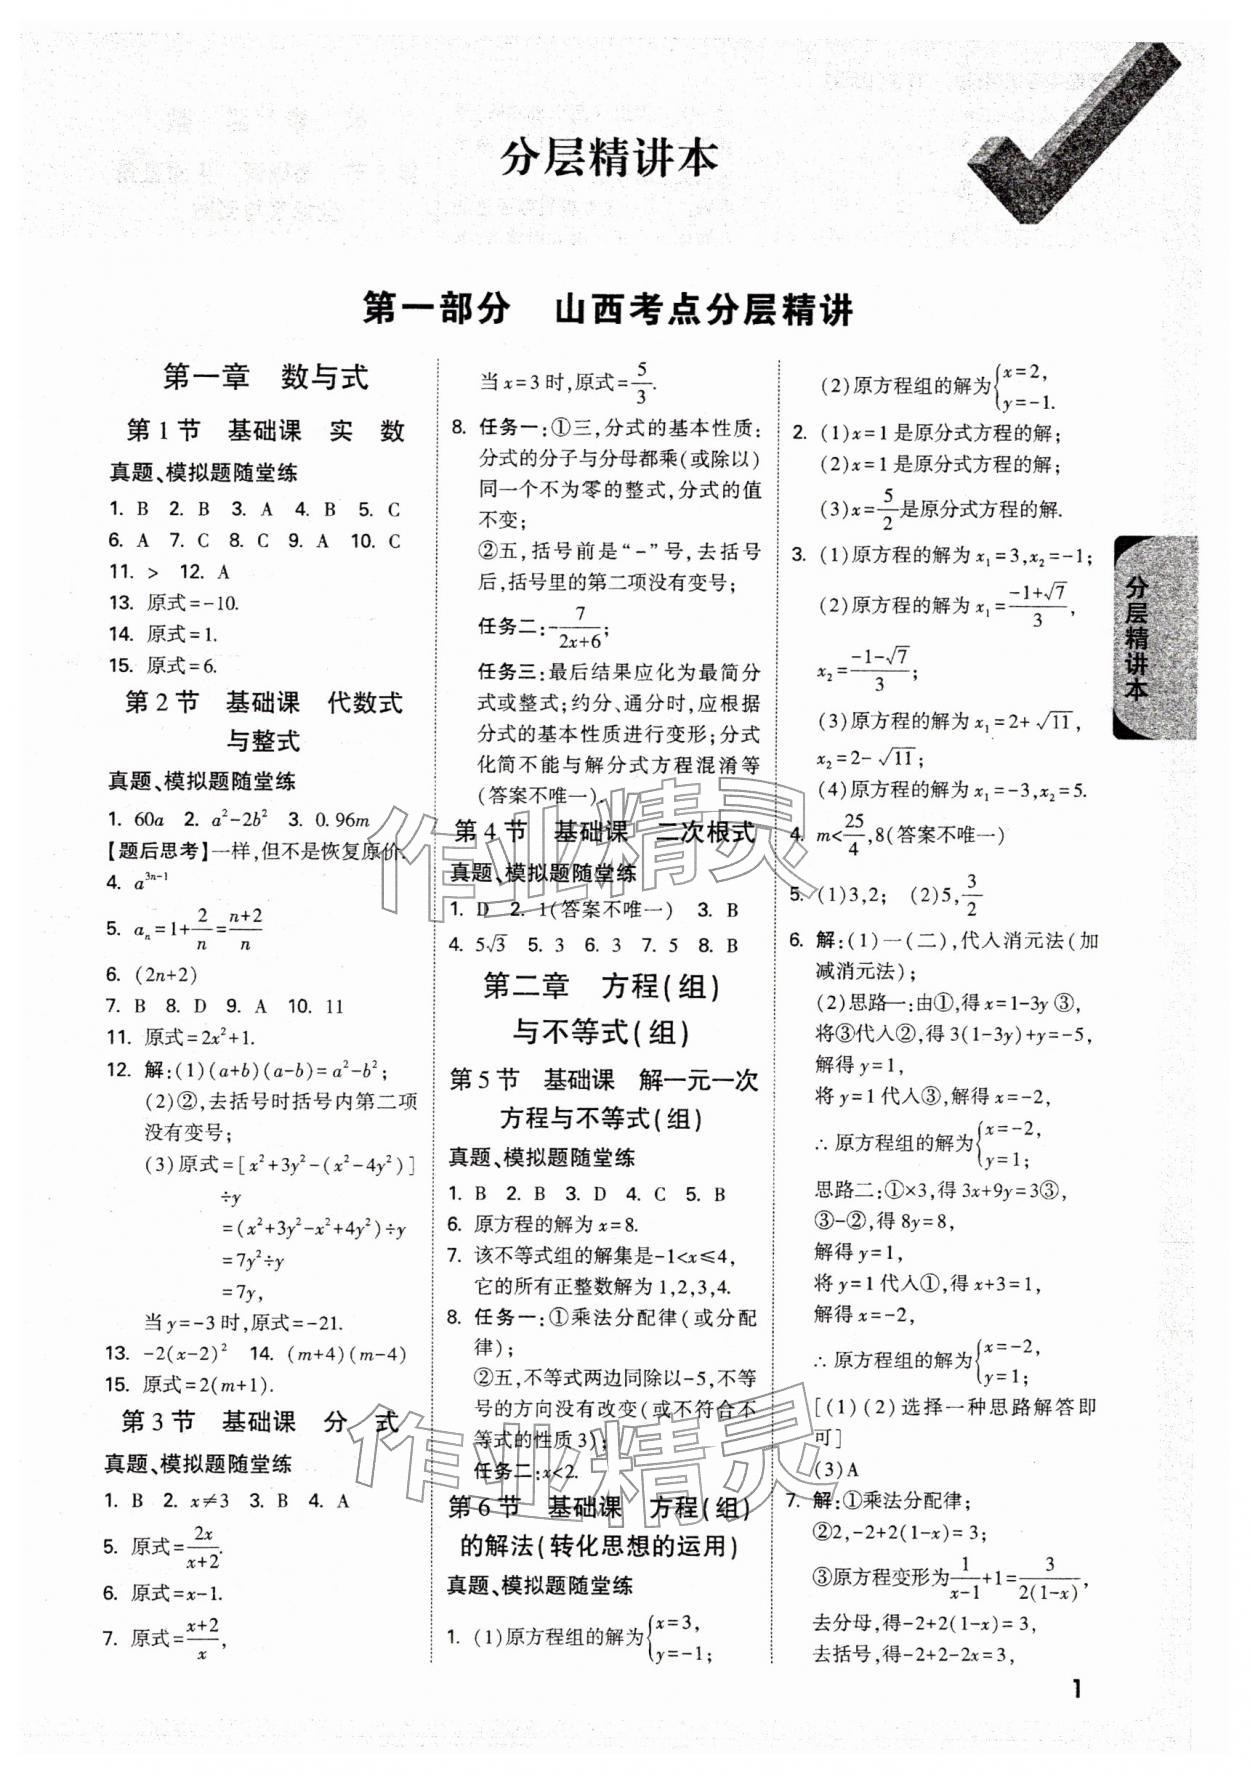 分层精讲本
第一部分　山西考点分层精讲
第一章　数与式
第1节　基础课　实　数
真题、模拟题随堂练
1. B 2. B 3. A 4. B 5. C
6. A 7. C 8. C 9. A 10. C
11. > 12. A
13. 原式=-10.
14. 原式=1.
15. 原式=6.
第2节　基础课　代数式
与整式
真题、模拟题随堂练
1. 60a 2. a²-2b² 3. 0.96m
【题后思考】一样,但不是恢复原价.
4. a³ⁿ⁻¹
5. aₙ=1+2/n=(n+2)/n
6. (2n+2)
7. B 8. D 9. A 10. 11
11. 原式=2x²+1.
12. 解:(1)(a+b)(a-b)=a²-b²;
(2)②,去括号时括号内第二项
没有变号;
(3)原式=[x²+3y²-(x²-4y²)]
÷y
=(x²+3y²-x²+4y²)÷y
=7y²÷y
=7y,
当y=-3时,原式=-21.
13. -2(x-2)² 14. (m+4)(m-4)
15. 原式=2(m+1).
第3节　基础课　分　式
真题、模拟题随堂练
1. B 2. x≠3 3. B 4. A
5. 原式=2x/(x+2).
6. 原式=x-1.
7. 原式=(x+2)/x,
当x=3时,原式=5/3.
8. 任务一:①三,分式的基本性质:
分式的分子与分母都乘(或除以)
同一个不为零的整式,分式的值
不变;
②五,括号前是“-”号,去括号
后,括号里的第二项没有变号;
任务二:-7/(2x+6);
任务三:最后结果应化为最简分
式或整式;约分、通分时,应根据
分式的基本性质进行变形;分式
化简不能与解分式方程混淆等
(答案不唯一).
第4节　基础课　二次根式
真题、模拟题随堂练
1. D 2. 1(答案不唯一) 3. B
4. 5√3 5. 3 6. 3 7. 5 8. B
第二章　方程(组)
与不等式(组)
第5节　基础课　解一元一次
方程与不等式(组)
真题、模拟题随堂练
1. B 2. B 3. D 4. C 5. B
6. 原方程的解为x=8.
7. 该不等式组的解集是-1<x≤4,
它的所有正整数解为1,2,3,4.
8. 任务一:①乘法分配律(或分配
律);
②五,不等式两边同除以-5,不等
号的方向没有改变(或不符合不
等式的性质3);
任务二:x<2.
第6节　基础课　方程(组)
的解法(转化思想的运用)
真题、模拟题随堂练
1. (1)原方程组的解为{x=3, y=-1;
(2)原方程组的解为{x=2, y=-1.
2. (1)x=1是原分式方程的解;
(2)x=1是原分式方程的解;
(3)x=5/2是原分式方程的解.
3. (1)原方程的解为x₁=3,x₂=-1;
(2)原方程的解为x₁=(-1+√7)/3,
x₂=(-1-√7)/3;
(3)原方程的解为x₁=2+√11,
x₂=2-√11;
(4)原方程的解为x₁=-3,x₂=5.
4. m<25/4,8(答案不唯一)
5. (1)3,2; (2)5,3/2
6. 解:(1)一(二),代入消元法(加
减消元法);
(2)思路一:由①,得x=1-3y ③,
将③代入②,得3(1-3y)+y=-5,
解得y=1,
将y=1代入③,解得x=-2,
∴原方程组的解为{x=-2, y=1;
思路二:①×3,得3x+9y=3③,
③-②,得8y=8,
解得y=1,
将y=1代入①,得x+3=1,
解得x=-2,
∴原方程组的解为{x=-2, y=1;
[(1)(2)选择一种思路解答即
可]
(3)A
7. 解:①乘法分配律;
②2,-2+2(1-x)=3;
③原方程变形为1/(x-1)+1=3/(2(1-x)),
去分母,得-2+2(1-x)=3,
去括号,得-2+2-2x=3,
分层精讲本
1
作业精灵
作业精灵